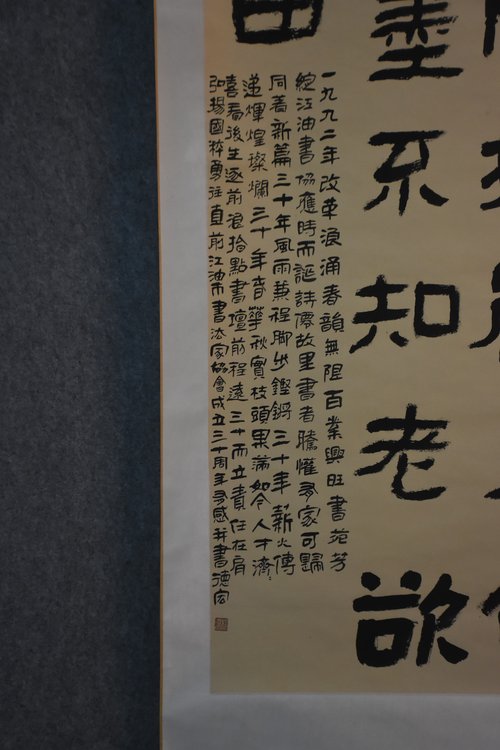 墨不知老欲
一九九二年改革浪涌春韻無阻百業興旺書苑芳
綻江油書協應時而誕詩僊故里書者騰懽有家可歸
同著新篇三十年風雨兼程脚步鏗鏘三十年薪火傳
遞輝煌璨爛三十年春華秋實枝頭果滿如今人才濟〻
喜看後生逐前浪指點書壇前程遠三十而立責任在肩
弘揚國粹勇往直前江油市書法家協會成立三十周年有感并書德宏